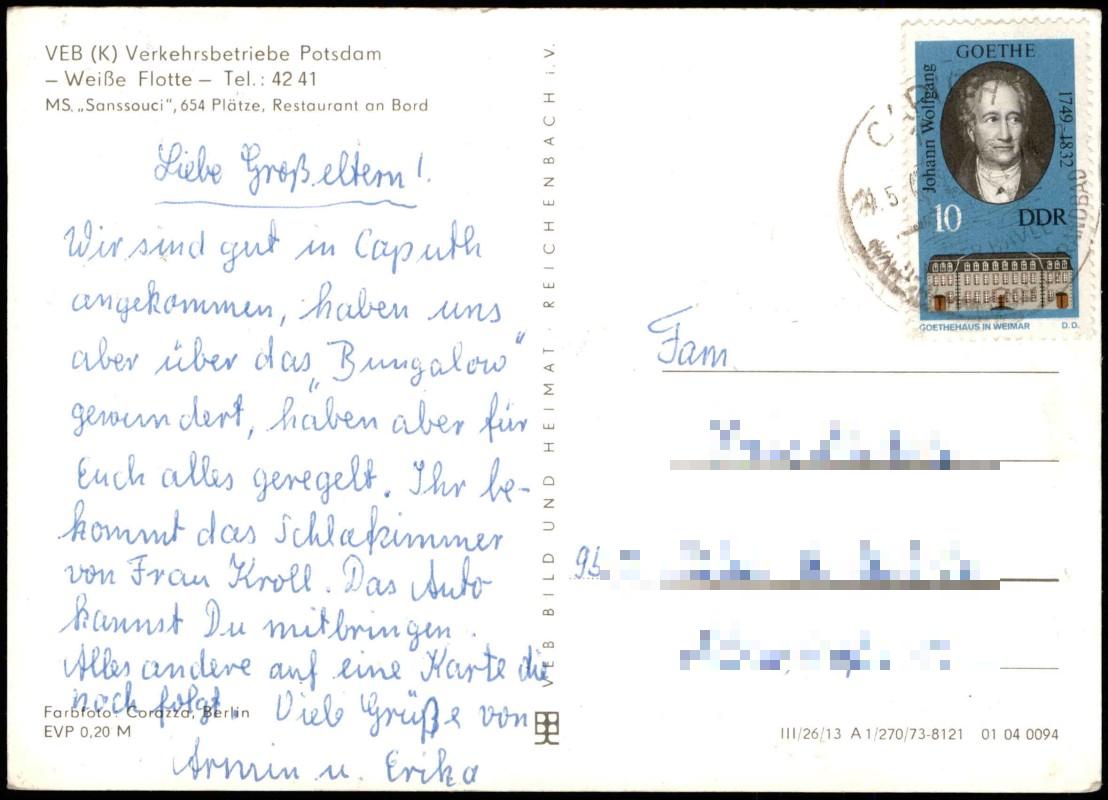 VEB (K) Verkehrsbetriebe Potsdam
– Weiße Flotte – Tel.: 42 41
MS. „Sanssouci“, 654 Plätze, Restaurant an Bord
Liebe Großeltern!
Wir sind gut in Caputh
angekommen, haben uns
aber über das „Bungalow“
gewundert, haben aber für
Euch alles geregelt. Ihr be-
kommt das Schlafzimmer
von Frau Kroll. Das Auto
kannst Du mitbringen.
Alles andere auf eine Karte die
noch folgt. Viele Grüße von
Armin u. Erika
Farbfoto: Corazza, Berlin
EVP 0,20 M
VEB BILD UND HEIMAT REICHENBACH i.V.
GOETHE
Johann Wolfgang
1749-1832
10 DDR
GOETHEHAUS IN WEIMAR D.D.
Fam.
III/26/13 A 1/270/73-8121 01 04 0094